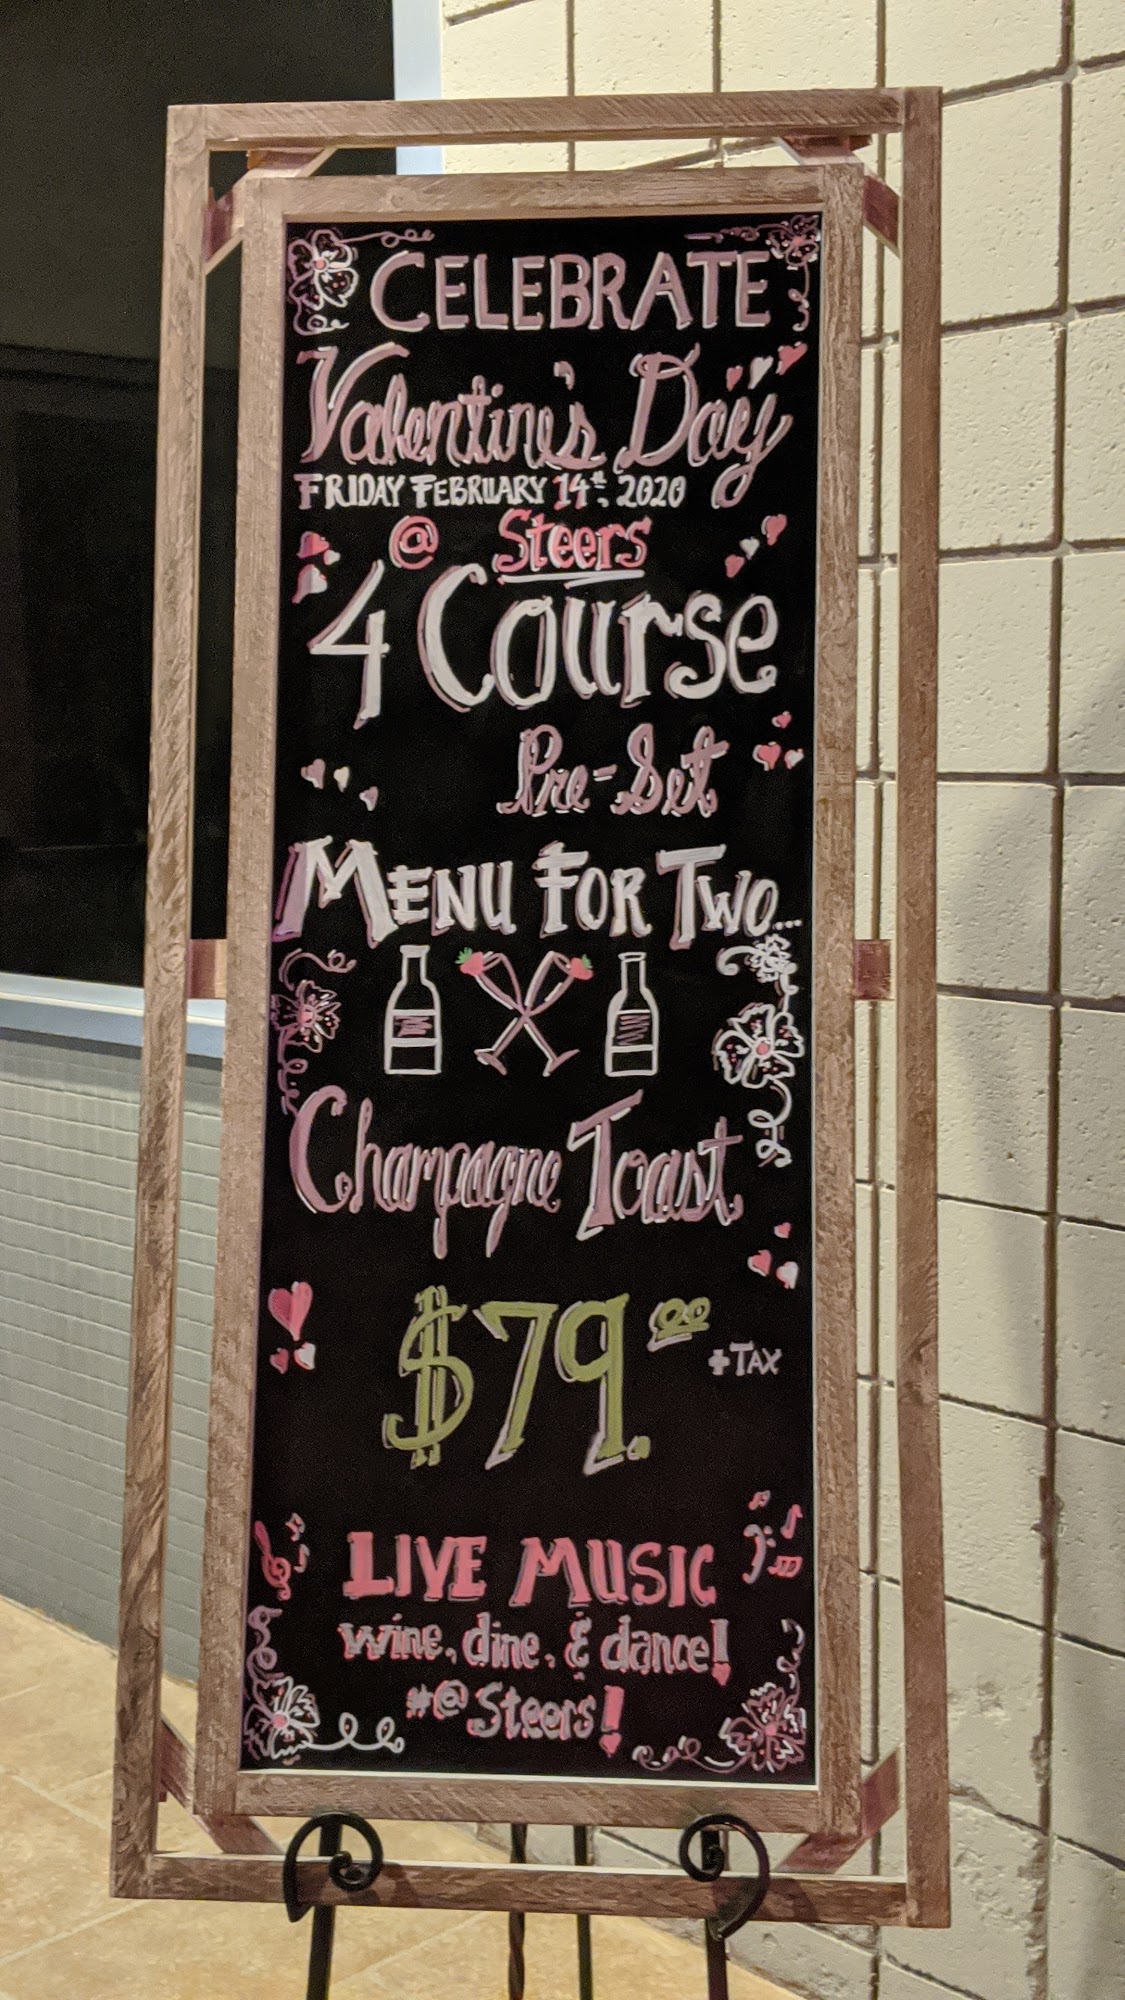 CELEBRATE
Valentine's Day
FRIDAY FEBRUARY 14th, 2020
@ Steers
4 Course
Pre-Set
MENU FOR TWO...
Champagne Toast
$79.00
+TAX
LIVE MUSIC
wine, dine, & dance!
#@Steers!